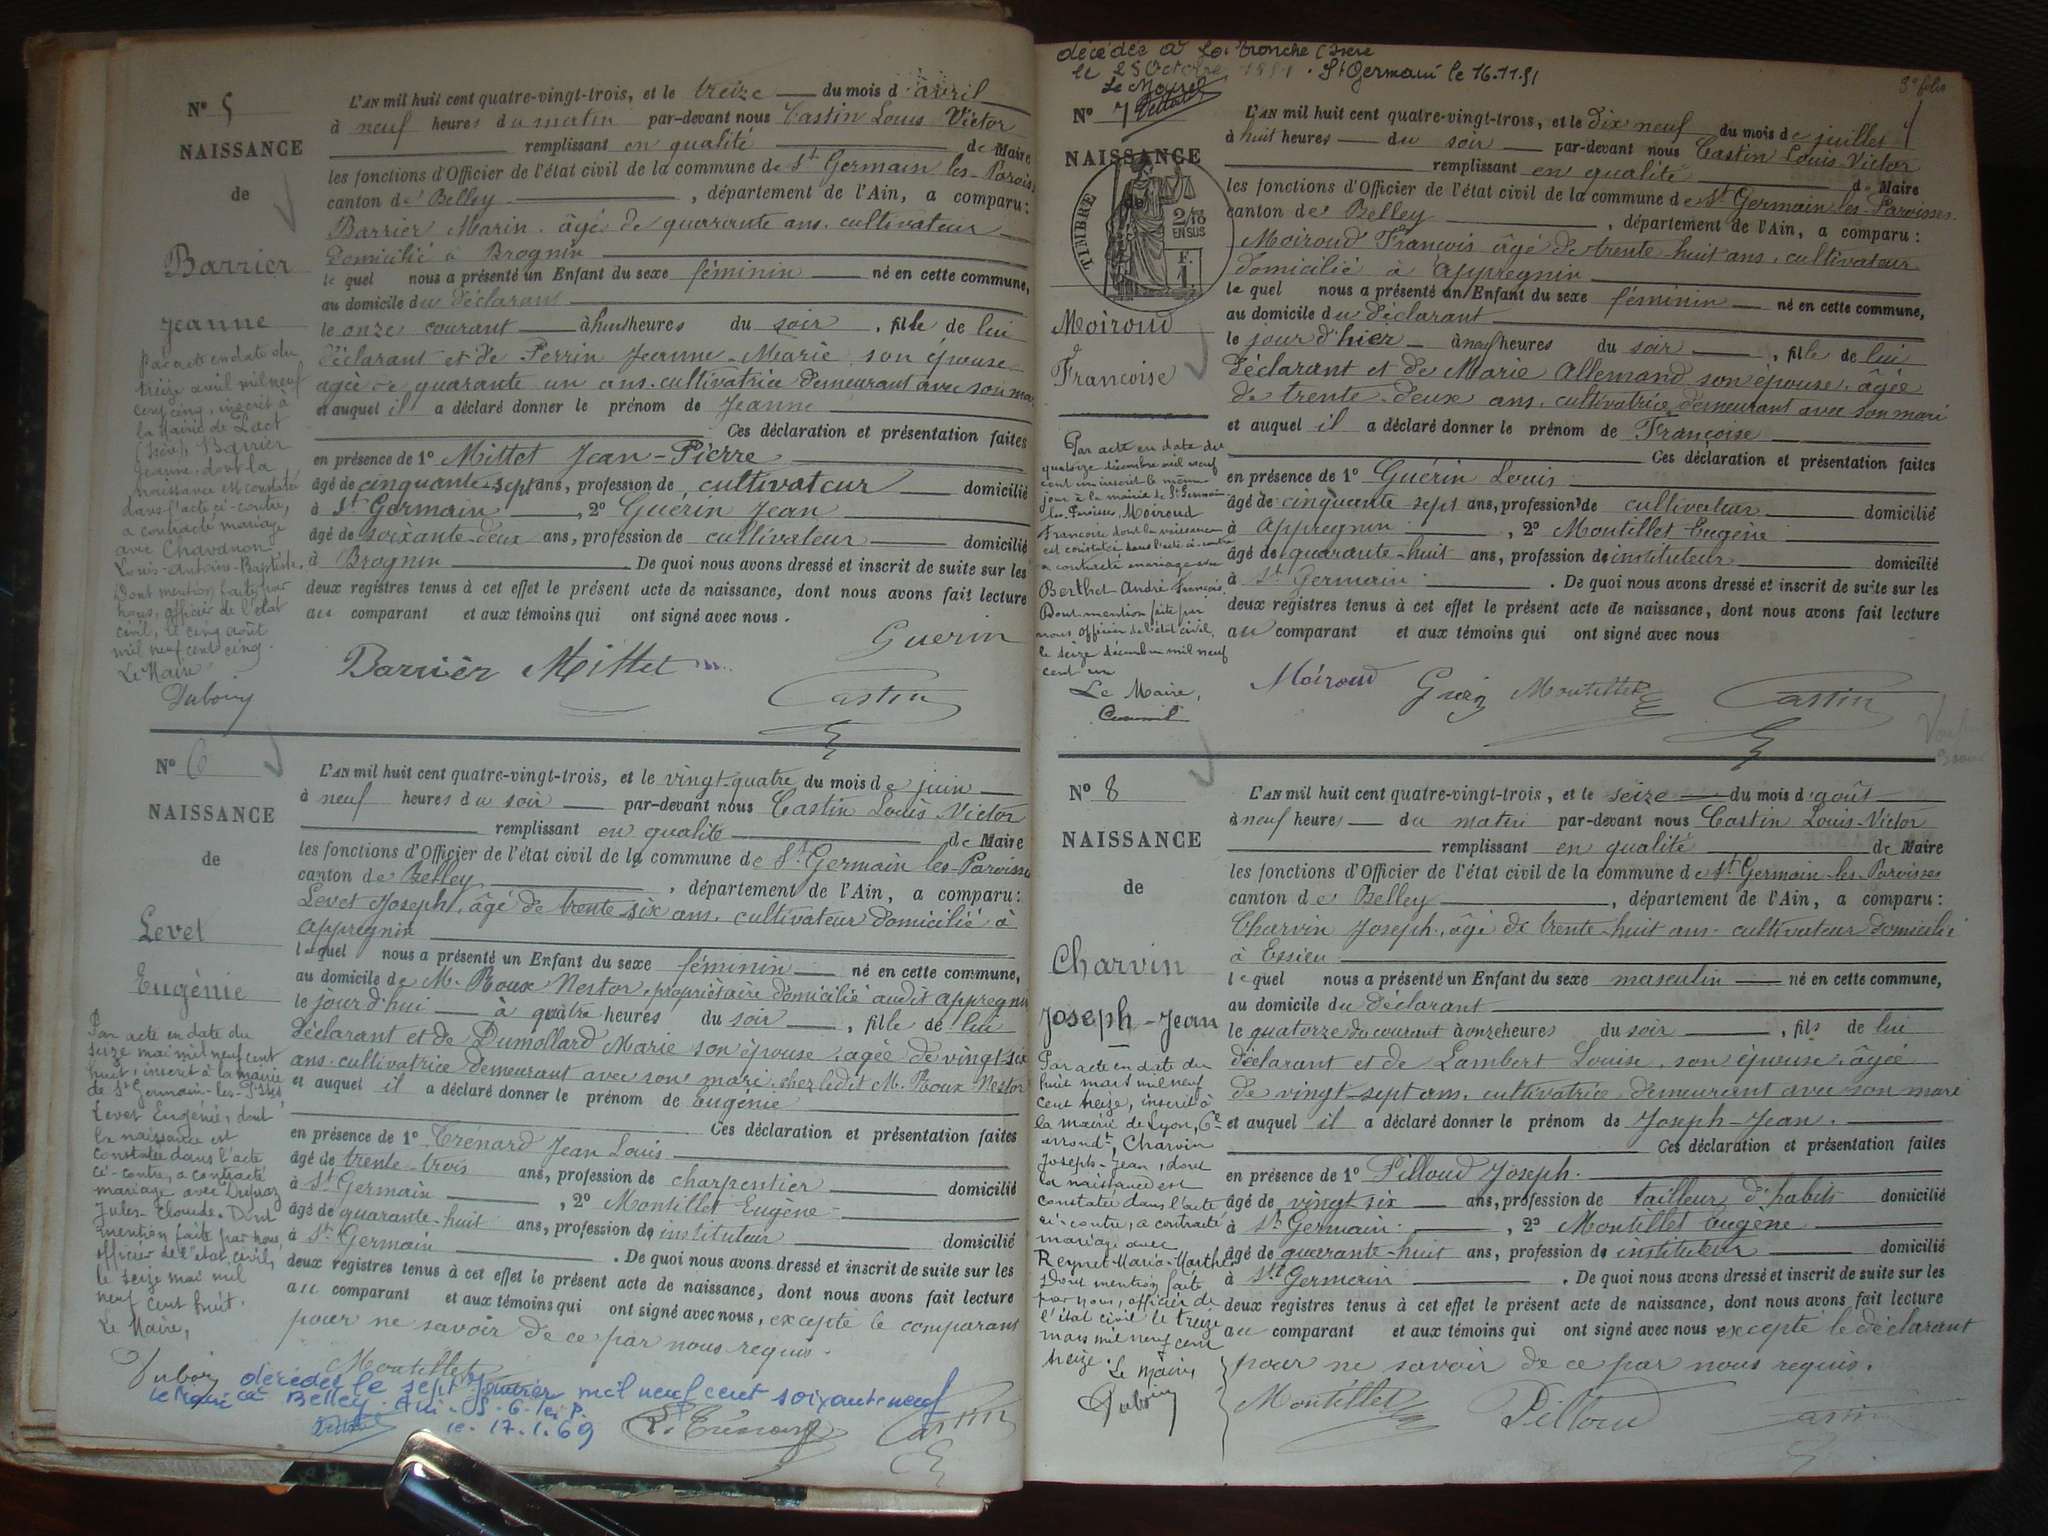 N° 5
NAISSANCE
de
Barrier
Jeanne
Par acte en date du
treize avril mil neuf
cent cinq, inscrit à
la Mairie de
(Isère) Barrier
Jeanne, dont la
naissance est constatée
dans l'acte ci-contre,
a contracté mariage
avec Chavanon
Louis-Antoine-Baptiste.
Dont mention faite par
nous, officier de l'état
civil, le cinq août
mil neuf cent cinq.
Le Maire
Duboiy
L'AN mil huit cent quatre-vingt-trois, et le treize du mois d'avril
à neuf heures du matin par-devant nous Castin Louis Victor
remplissant en qualité de Maire
les fonctions d'Officier de l'état civil de la commune de St Germain les-Parois
canton de Belley, département de l'Ain, a comparu:
Barrier Marin âgé de quarante ans, cultivateur
domicilié à Brognin
lequel nous a présenté un Enfant du sexe féminin né en cette commune,
au domicile du déclarant
le onze courant à huit heures du soir, fille de lui
déclarant et de Perrin Jeanne-Marie son épouse
agée de quarante un ans. cultivatrice demeurant avec son ma
et auquel il a déclaré donner le prénom de Jeanne
Ces déclaration et présentation faites
en présence de 1° Mittet Jean-Pierre
âgé de cinquante-sept ans, profession de cultivateur domicilié
à St Germain, 2° Guérin Jean
âgé de soixante-deux ans, profession de cultivateur domicilié
à Brognin. De quoi nous avons dressé et inscrit de suite sur les
deux registres tenus à cet effet le présent acte de naissance, dont nous avons fait lecture
au comparant et aux témoins qui ont signé avec nous.
Guerin
Barrier Mittet
Castin
N° 6
NAISSANCE
de
Levet
Eugénie
Par acte en date du
seize mai mil neuf cent
huit, inscrit à la mairie
de St Germain-les-Pses
Levet Eugénie, dont
la naissance est
constatée dans l'acte
ci-contre, a contracté
mariage avec Dufraz
Jules-Claude. Dont
mention faite par nous,
officier de l'état civil,
le seize mai mil
neuf cent huit.
Le Maire,
Duboiy
L'AN mil huit cent quatre-vingt-trois, et le vingt-quatre du mois de juin
à neuf heures du soir par-devant nous Castin Louis Victor
remplissant en qualité de Maire
les fonctions d'Officier de l'état civil de la commune de St Germain les-Paroisse
canton de Belley, département de l'Ain, a comparu:
Levet Joseph, âgé de trente six ans, cultivateur domicilié à
Appregnin
lequel nous a présenté un Enfant du sexe féminin né en cette commune,
au domicile de M. Roux Nestor, propriétaire domicilié audit Appregnin
le jour d'hui à quatre heures du soir, fille de lui
déclarant et de Dumollard Marie son épouse, agée de vingt six
ans. cultivatrice demeurant avec son mari, chez ledit M. Roux Nestor
et auquel il a déclaré donner le prénom de Eugénie
Ces déclaration et présentation faites
en présence de 1° Trénard Jean Louis
âgé de trente-trois ans, profession de charpentier domicilié
à St Germain, 2° Montillet Eugène
âgé de quarante-huit ans, profession de instituteur domicilié
à St Germain. De quoi nous avons dressé et inscrit de suite sur les
deux registres tenus à cet effet le présent acte de naissance, dont nous avons fait lecture
au comparant et aux témoins qui ont signé avec nous, excepté le comparant
pour ne savoir de ce par nous requis.
Montillet
décédée le sept Janvier mil neuf cent soixante neuf
à Belley. Ain
le 17.1.69
Le Maire
L. Trénard
Castin
décédée à La Tronche (Isère
le 25 Octobre 1951. St Germain le 16.11.51
Le Maire
3e folio
N° 7
NAISSANCE
de
TIMBRE
2/10
EN SUS
F.
1
Moiroud
Françoise
Par acte en date du
quatorze décembre mil neuf
cent un inscrit le même
jour à la mairie de St Germain
les Paroisses, Moiroud
Françoise dont la naissance
est constatée dans l'acte ci-contre
a contracté mariage avec
Berthet André François.
Dont mention faite par
nous, officier de l'état civil,
le seize décembre mil neuf
cent un
Le Maire,
L'AN mil huit cent quatre-vingt-trois, et le dix neuf du mois de juillet
à huit heures du soir par-devant nous Castin Louis-Victor
remplissant en qualité de Maire
les fonctions d'Officier de l'état civil de la commune de St Germain-les-Paroisses
canton de Belley, département de l'Ain, a comparu:
Moiroud François âgé de trente huit ans, cultivateur
domicilié à Appregnin
lequel nous a présenté un Enfant du sexe féminin né en cette commune,
au domicile du déclarant
le jour d'hier à neuf heures du soir, fille de lui
déclarant et de Marie Allemand son épouse, âgée
de trente-deux ans, cultivatrice demeurant avec son mari
et auquel il a déclaré donner le prénom de Françoise
Ces déclaration et présentation faites
en présence de 1° Guérin Louis
âgé de cinquante sept ans, profession de cultivateur domicilié
à Appregnin, 2° Montillet Eugène
âgé de quarante-huit ans, profession de instituteur domicilié
à St Germain. De quoi nous avons dressé et inscrit de suite sur les
deux registres tenus à cet effet le présent acte de naissance, dont nous avons fait lecture
au comparant et aux témoins qui ont signé avec nous
Moiroud Montillet Castin
N° 8
NAISSANCE
de
Charvin
Joseph-Jean
Par acte en date du
huit mars mil neuf
cent treize, inscrit à
la mairie de Lyon, 6e
arrondt, Charvin
Joseph-Jean, dont
la naissance est
constatée dans l'acte
ci-contre, a contracté
mariage avec
Reynet-Marie-Marthe
Dont mention faite
par nous, officier de
l'état civil le treize
mars mil neuf cent
treize. Le Maire,
Duboiy
L'AN mil huit cent quatre-vingt-trois, et le seize du mois d'août
à neuf heures du matin par-devant nous Castin Louis-Victor
remplissant en qualité de Maire
les fonctions d'Officier de l'état civil de la commune de St Germain-les-Paroisses
canton de Belley, département de l'Ain, a comparu:
Charvin Joseph, âgé de trente-huit ans cultivateur domicilié
à Essieu
lequel nous a présenté un Enfant du sexe masculin né en cette commune,
au domicile du déclarant
le quatorze du courant à onze heures du soir, fils de lui
déclarant et de Lambert Louise, son épouse, âgée
de vingt-sept ans, cultivatrice, demeurant avec son mari
et auquel il a déclaré donner le prénom de Joseph-Jean.
Ces déclaration et présentation faites
en présence de 1° Pilloud Joseph.
âgé de vingt six ans, profession de tailleur d'habits domicilié
à St Germain, 2° Montillet Eugène
âgé de quarante-huit ans, profession de instituteur domicilié
à St Germain. De quoi nous avons dressé et inscrit de suite sur les
deux registres tenus à cet effet le présent acte de naissance, dont nous avons fait lecture
au comparant et aux témoins qui ont signé avec nous excepté le déclarant
pour ne savoir de ce par nous requis.
Montillet Pilloud Castin